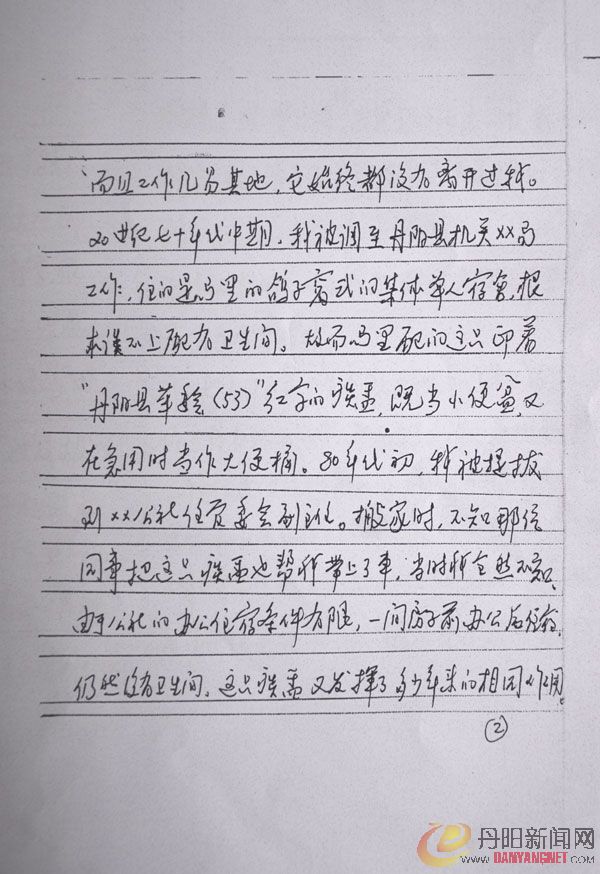 而且工作几易其地，它始终都没有离开过我。
20世纪七十年代中期，我被调至丹阳县机关XX局
工作，住的是局里的鸽子窝式的集体单人宿舍，根
本谈不上配有卫生间。然而局里配的这只印着
"丹阳县革委会(53)"红字的痰盂，既当小便盆，又
在急用时当作大便桶。80年代初，我被提拔
到XX公社任管委会副主任。搬家时，不知那位
同事把这只痰盂也帮我带上了车，当时我全然不知。
由于公社的办公住宿条件有限，一间房子前办公后住宿，
仍然没有卫生间。这只痰盂又发挥了多少年来的相同作用
②
丹阳新闻网
DANYANGNET.COM